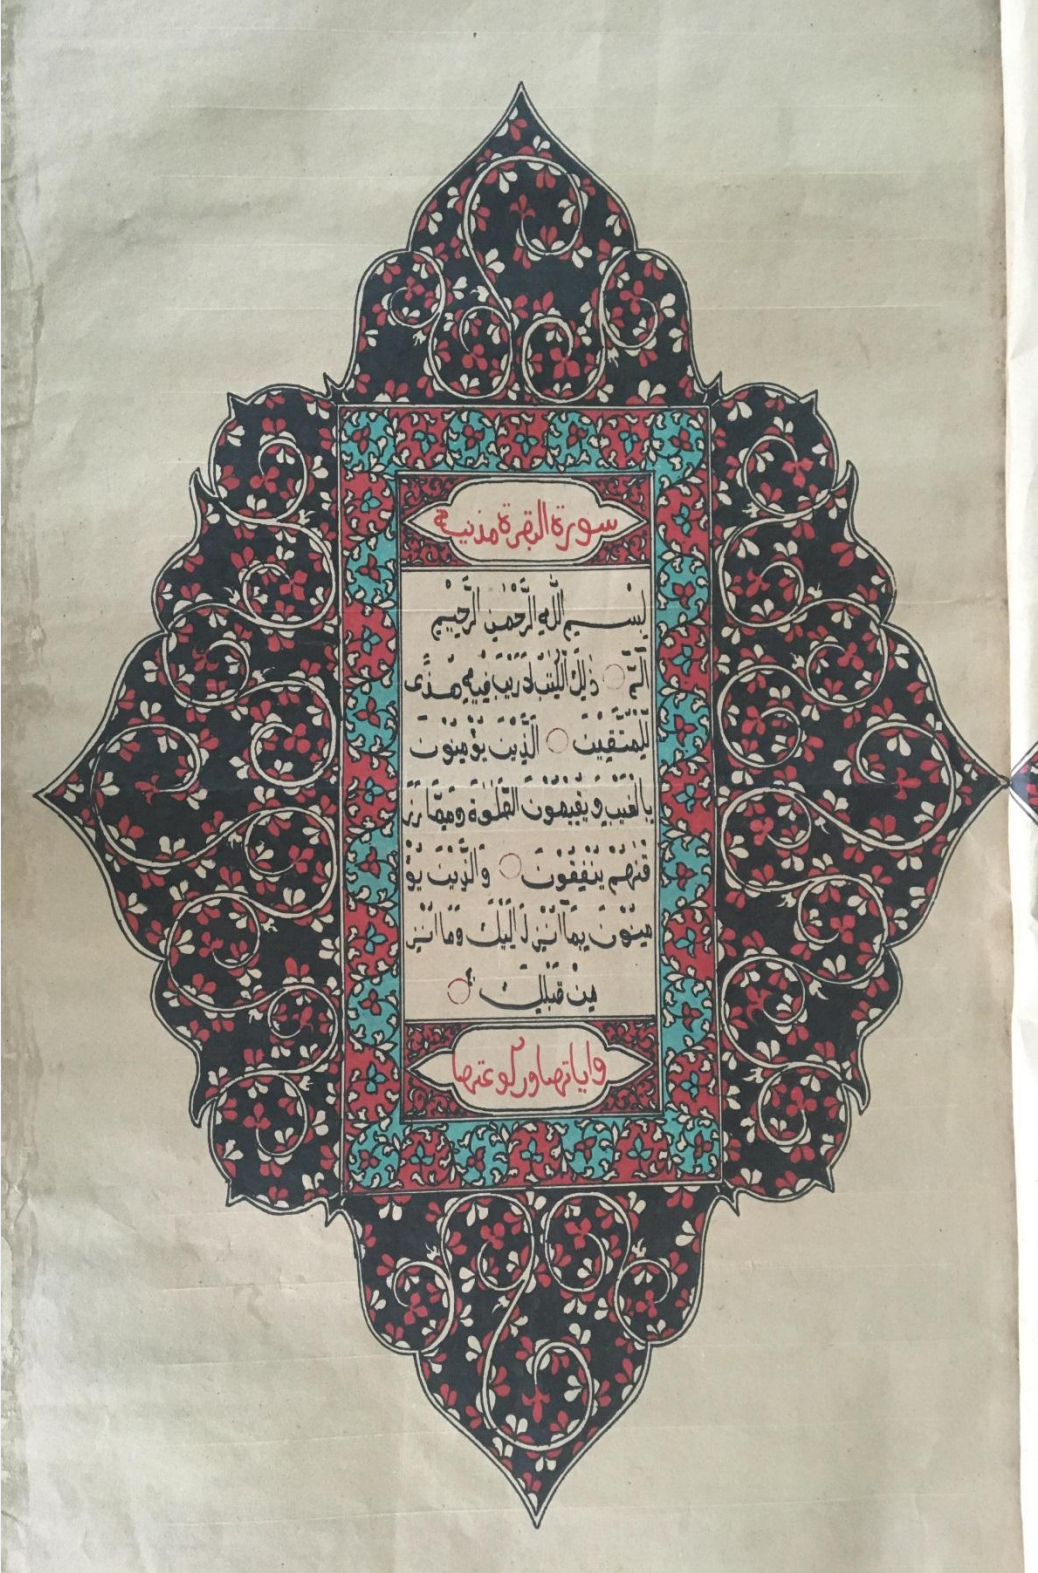 سورة البقرة مذنية
بِسْــمِ اللّٰهِ الرَّحْمٰنِ الرَّحِيْمِ
الٓمّٓ ○ ذٰلِكَ الْكِتٰبُ لَارَيْبَ فِيْهِ هُدًى
لِّلْمُتَّقِيْنَ ○ الَّذِيْنَ يُؤْمِنُوْنَ
بِالْغَيْبِ وَيُقِيْمُوْنَ الصَّلٰوةَ وَمِمَّا رَزَ
قْنٰهُمْ يُنْفِقُوْنَ ○ وَالَّذِيْنَ يُؤْ
مِنُوْنَ بِمَآ اُنْزِلَ اِلَيْكَ وَمَا اُنْزِلَ
مِنْ قَبْلِكَ ○
واياتها وركوعتها